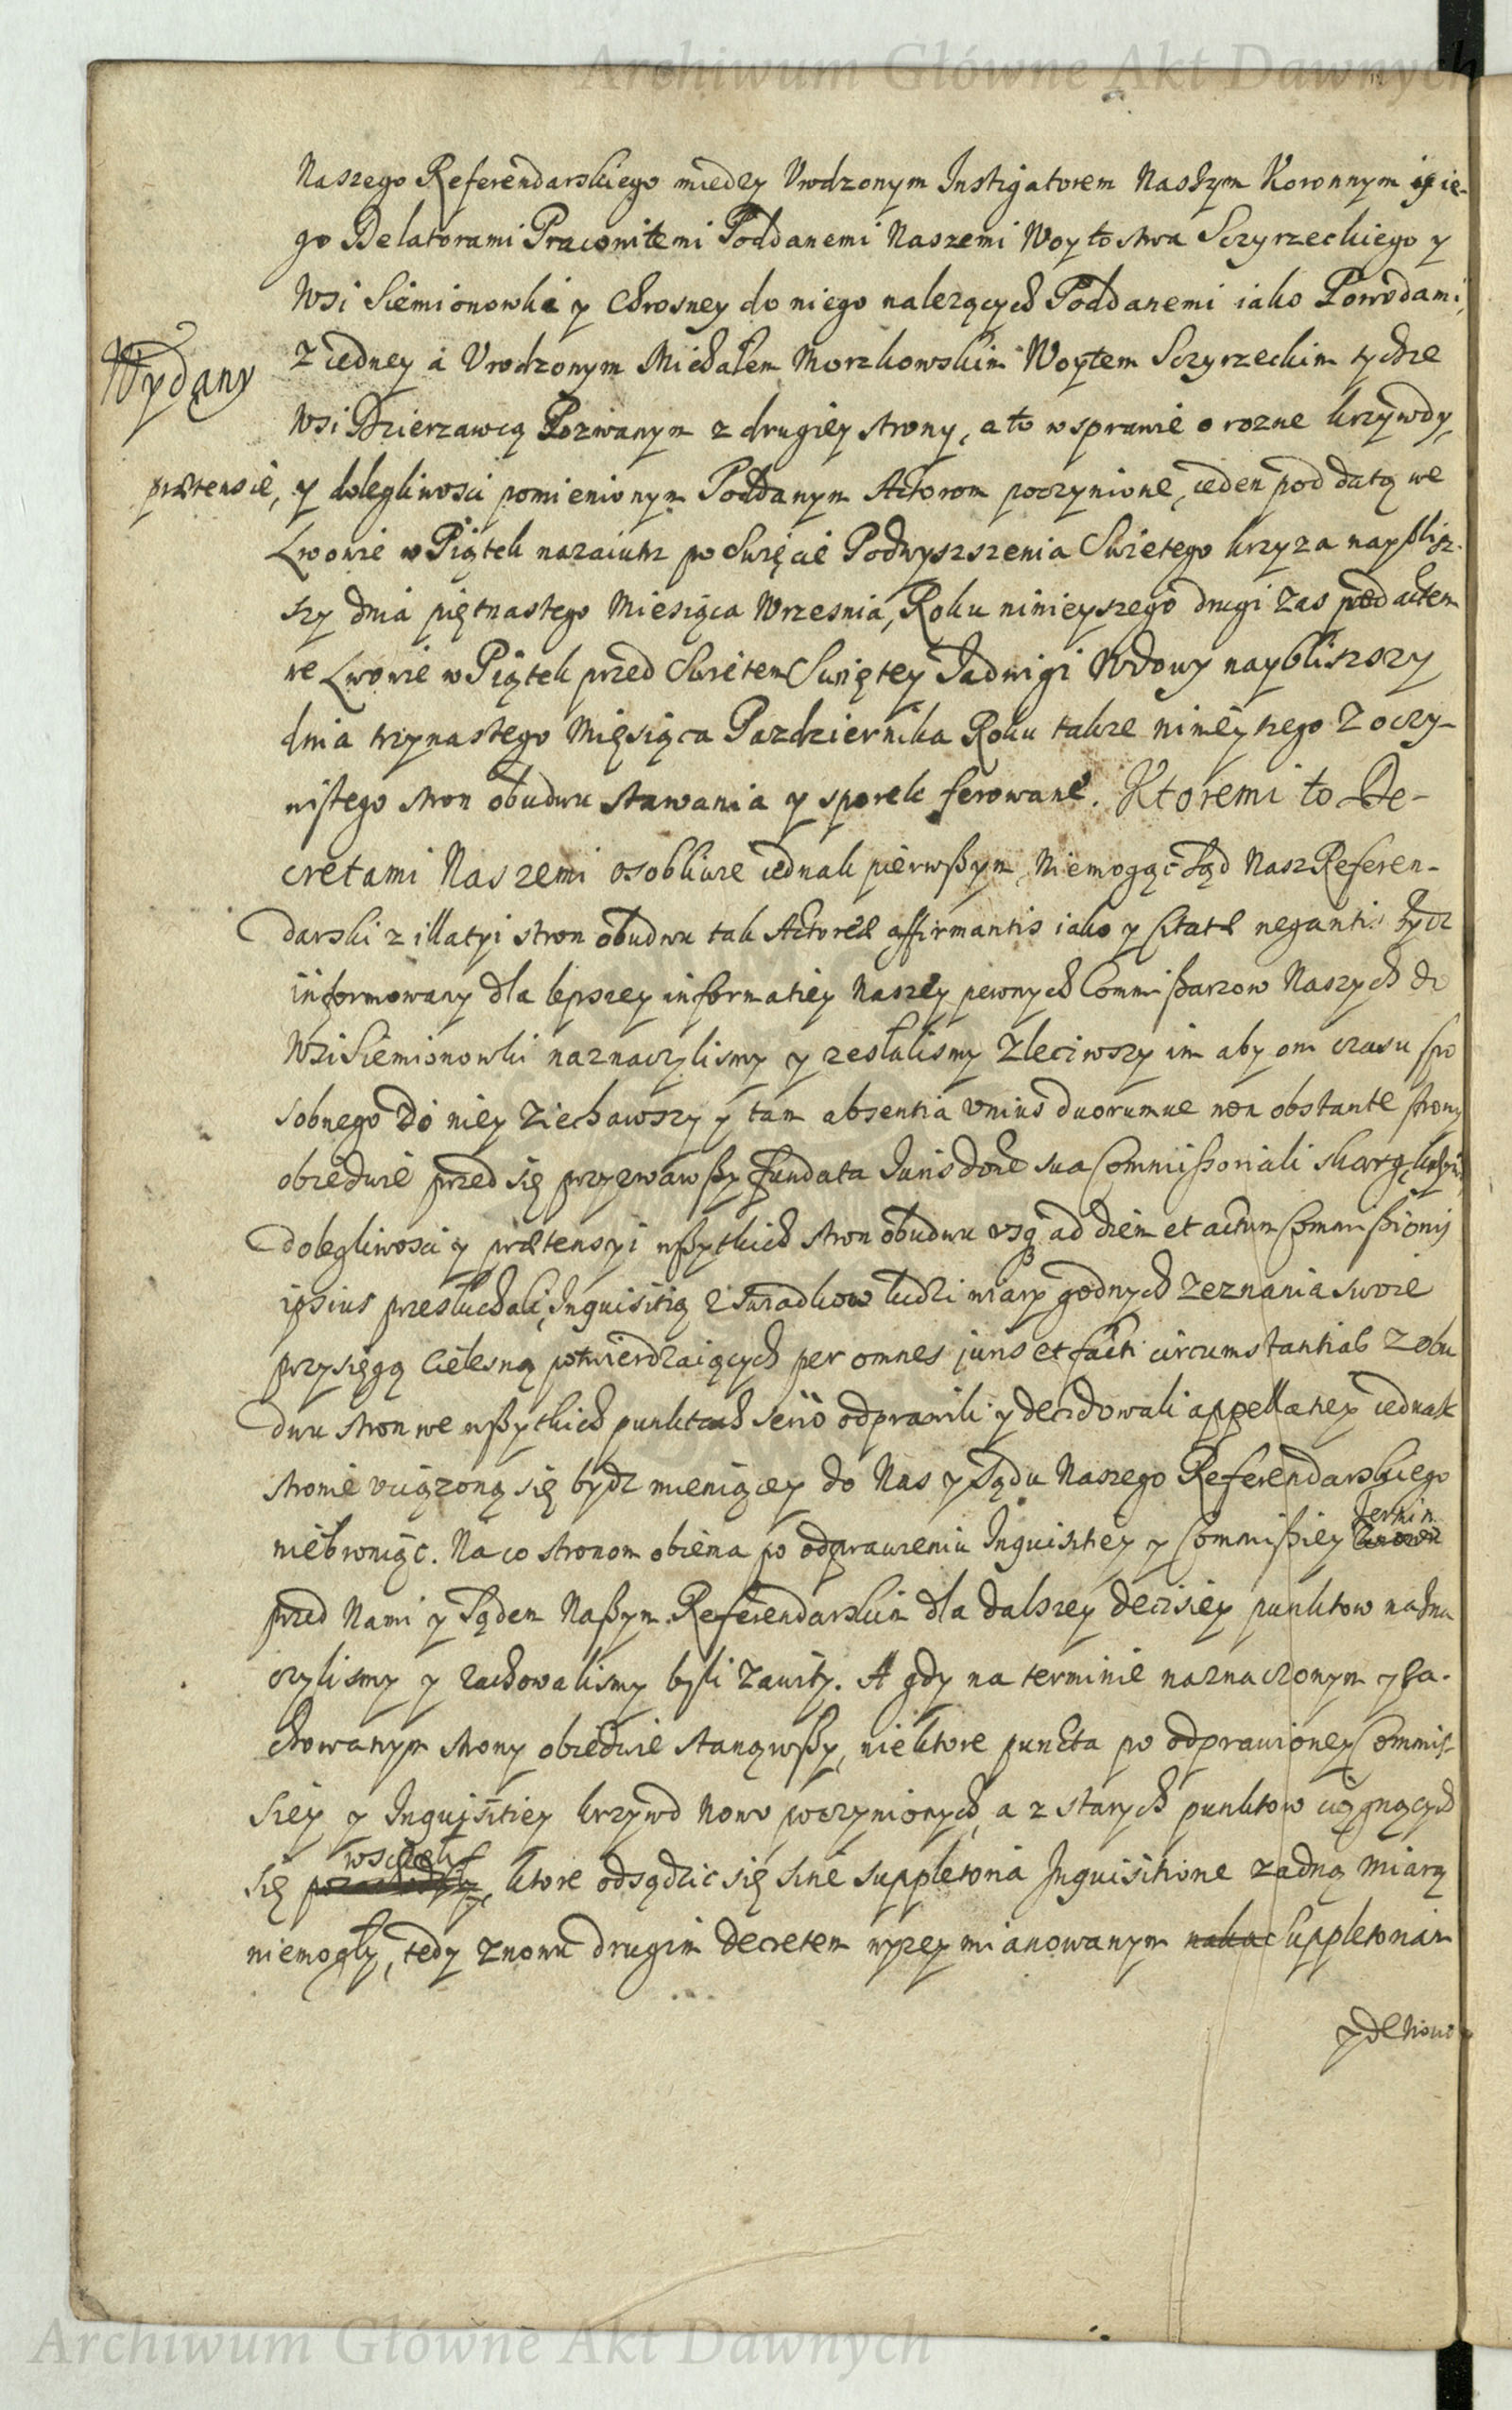 Archiwum Główne Akt Dawnych
Naszego Referendarskiego miedzy Vrodzonym Instigatorem Naszym Koronnym y ie-
go Delatorami Pracowitemi Poddanemi Naszemi Woytostwa Sczyrzeckiego y
Wsi Siemionowki y Chrosney do niego nalezących Poddanemi iako Powodami,
z iedney á Vrodzonym Michałem Morzkowskim Woytem Sczyrzeckim tychze
Wydany
Wsi Dzierzawcą Pozwanym z drugiey strony, a to w sprawie o rozne krzywdy,
prætensie, y dolegliwosci pomienionym Poddanym Actorom poczynione, ieden pod datą we
Lwowie w Piątek nazaiutrz po Swięcie Podwyszszenia Swietego krzyza naybliz-
szy dnia piętnastego Miesiąca Wrzesnia, Roku ninieyszego drugi zas pod actem
we Lwowie w Piątek przed Swietem Swiętey Jadwigi Wdowy naybliszszy
dnia trzynastego Miesiąca Pazdziernika Roku takze ninieyszego z oczy-
wistego stron obudwu stawania y sporek ferowane. Ktoremi to De-
cretami Naszemi osobliwie iednak pierwßym, Niemogąc Sąd Nasz Referen-
darski z illatyi stron obudwu tak Actoreæ affirmantis iako y Citatæ negantis bydz
informowany dla lepszey informatiey Naszey pewnych Commißarzow Naszych do
Wsi Siemionowki naznaczylismy y zesłalismy zleciwszy im aby oni czasu spo
sobnego do niey ziechawszy y tam absentia vnius duorumue non obstante strony
obiedwie przed się przyzwawßy fundata Jurisdone sua Commißoriali skarg, krzywd,
dolegliwosci y prætensyi wßytkich stron obudwu vsq ad diem et actum Commißionis
ipsius przesłuchali, Inquisitią z swiadkow ludzi wiary godnych zeznania swoie
przysięgą cielesną potwierdzaiących per omnes juris et facti circumstantias z obu
dwu stron we wßytkich punktach serio odprawili y decidowali appellatiey iednak
stronie vciązoną się bydz mieniącey do Nas y Sądu Naszego Referendarskiego
niebroniąc. Na co stronom obiema po odprawieniu Inquisitiey y Commißiey Termin
przed Nami y Sądem Naßym Referendarskim dla dalszey decisiey punktow nazna
czylismy y zachowalismy byli zawity. A gdy na terminie naznaczonym y za-
chowanym strony obiedwie stanąwßy, niektore puncta po odprawioney Commis-
siey y Inquisitiey krzywd nowo poczynionych, a z starych punktow ciągnących
się wsczęli, ktore odsądzic się sine suppletoria Inquisitione zadną miarą
niemogły, tedy znowu drugim decretem wyzey mianowanym Suppletoriam
Archiwum Główne Akt Dawnych